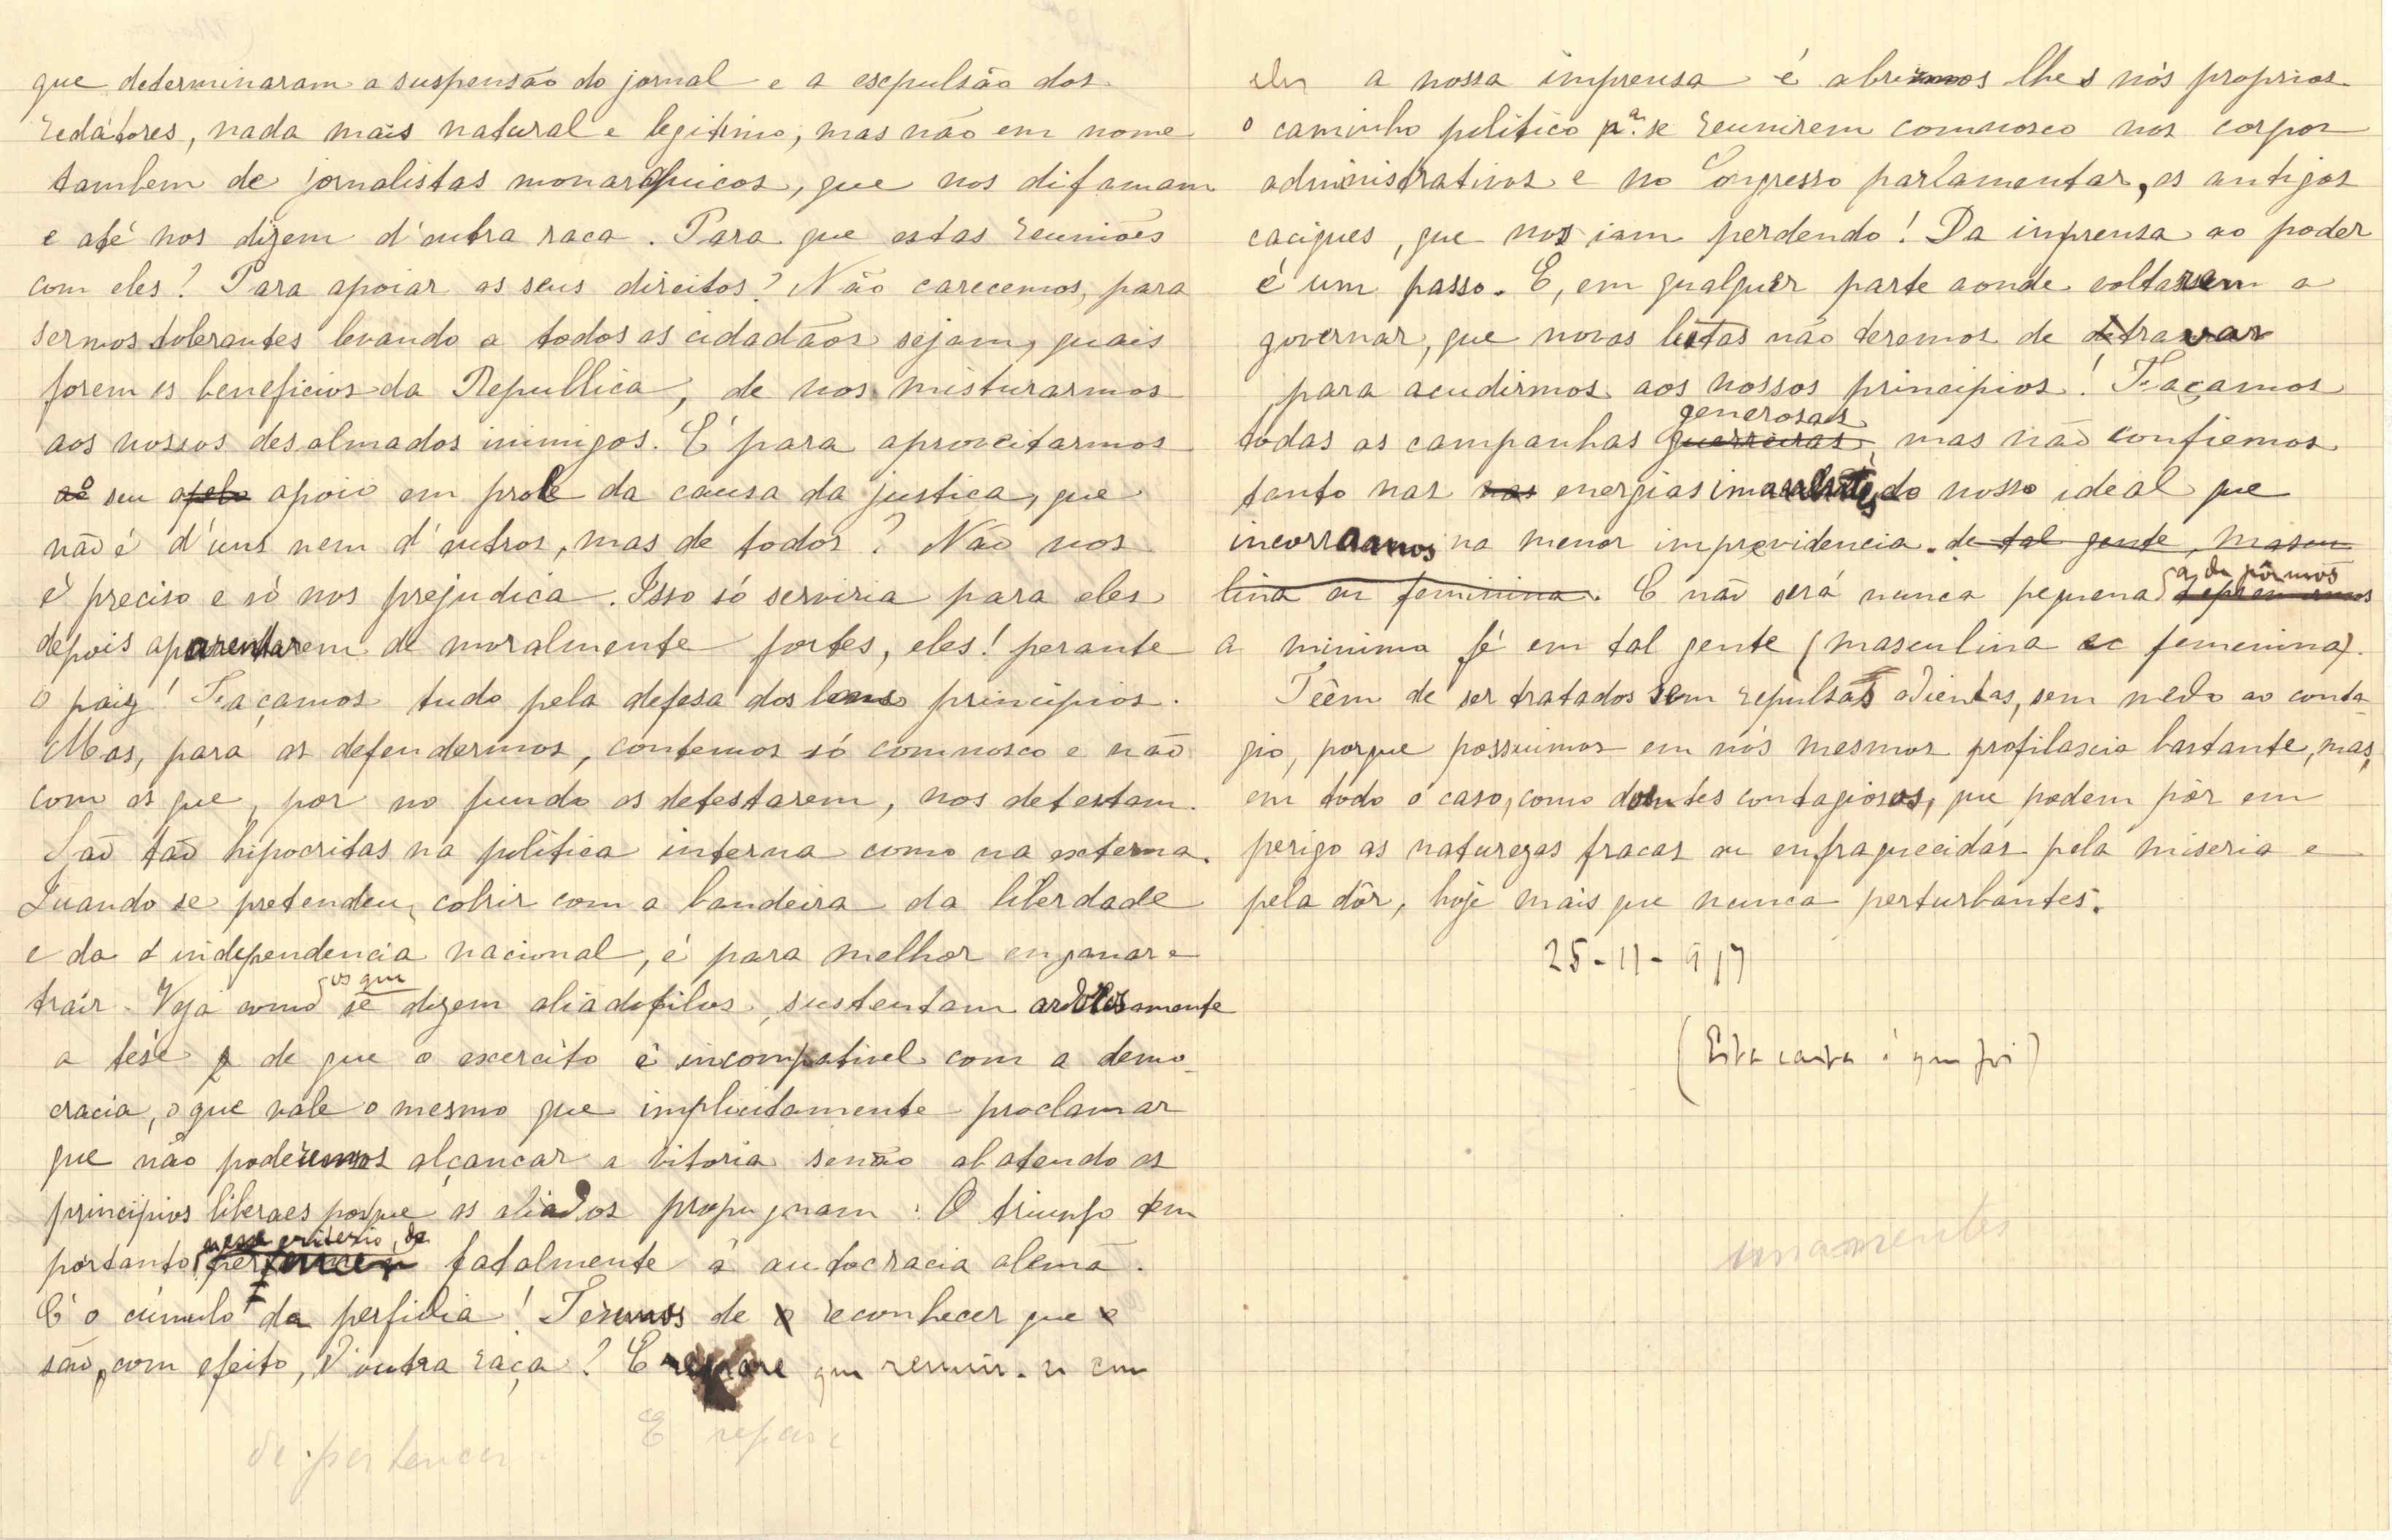 que determinaram a suspensão do jornal e a escpulsão dos
redátores, nada mais natural e legitimo, mas não em nome
tambem de jornalistas monarquicos, que nos difamam
e até nos dizem d'outra raca. Para que estas reuniões
com eles? Para apoiar os seus direitos? Não carecemos, para
sermos tolerantes levando a todos os cidadãos sejam, quais
forem os beneficios da Republica, de nos misturarmos
aos nossos desalmados inimigos. E' para aproveitarmos
o seu apoio em prole da causa da justica, que
não é d'uns nem d'outros, mas de todos? Não nos
é preciso e só nos prejudica. Isso só serviria para eles
depois aparentarem de moralmente fortes, eles! perante
o paiz! Façamos tudo pela defesa dos bons principios.
Mas, para os defendermos, contemos só comnosco e não
com os que, por no fundo os detestarem, nos detestam.
São tão hipocritas na politica interna como na externa.
Quando se pretendeu, cobrir com a bandeira da liberdade
e da independencia nacional, é para melhor enganar e
os que
traír. Veja como se dizem aliadofilos, sustentam ardilosamente
a tese de que o exercito é incompativel com a demo-
cracia, o que vale o mesmo que implicitamente proclamar
que não poderemos alçancar a vitoria senão abatendo os
principios liberaes porque os aliados propugnam. O triunfo tem
nesse criterio, de
portanto pertencer fatalmente á autocracia alemã.
E' o cúmulo da perfidia! Teremos de reconhecer que
são, com efeito, d'outra raça? E repare que reunir-se em
E repare
de pertencer
a nossa imprensa é abrirmos lhes nós proprios
o caminho politico pª. se reunirem comnosco nos corpos
administrativos e no Congresso parlamentar, os antigos
caciques, que nos iam perdendo! Da imprensa ao poder
é um passo. E, em qualquer parte aonde voltassem a
governar, que novas lutas não teremos de travar
para acudirmos aos nossos principios! Façamos
generosas
todas as campanhas guerreiras, mas não confiemos
tanto nas nas energias do nosso ideal que
incorramos na menor imprevidencia. de tal gente, mascu
lina ou feminina. E não será nunca pequena
a de pôrmos
a minima fé em tal gente (masculina ou femenina).
Têêm de ser tratados sem repulsas odientas, sem medo ao conta-
gio, porque possuimos em nós mesmos profilascia bastante, mas,
em todo o caso, como doentes contagiosos, que podem pôr em
perigo as naturezas fracas ou enfraquecidas pela miseria e
pela dôr, hoje mais que nunca perturbantes.
25-11-917
(Esta carta é que foi)